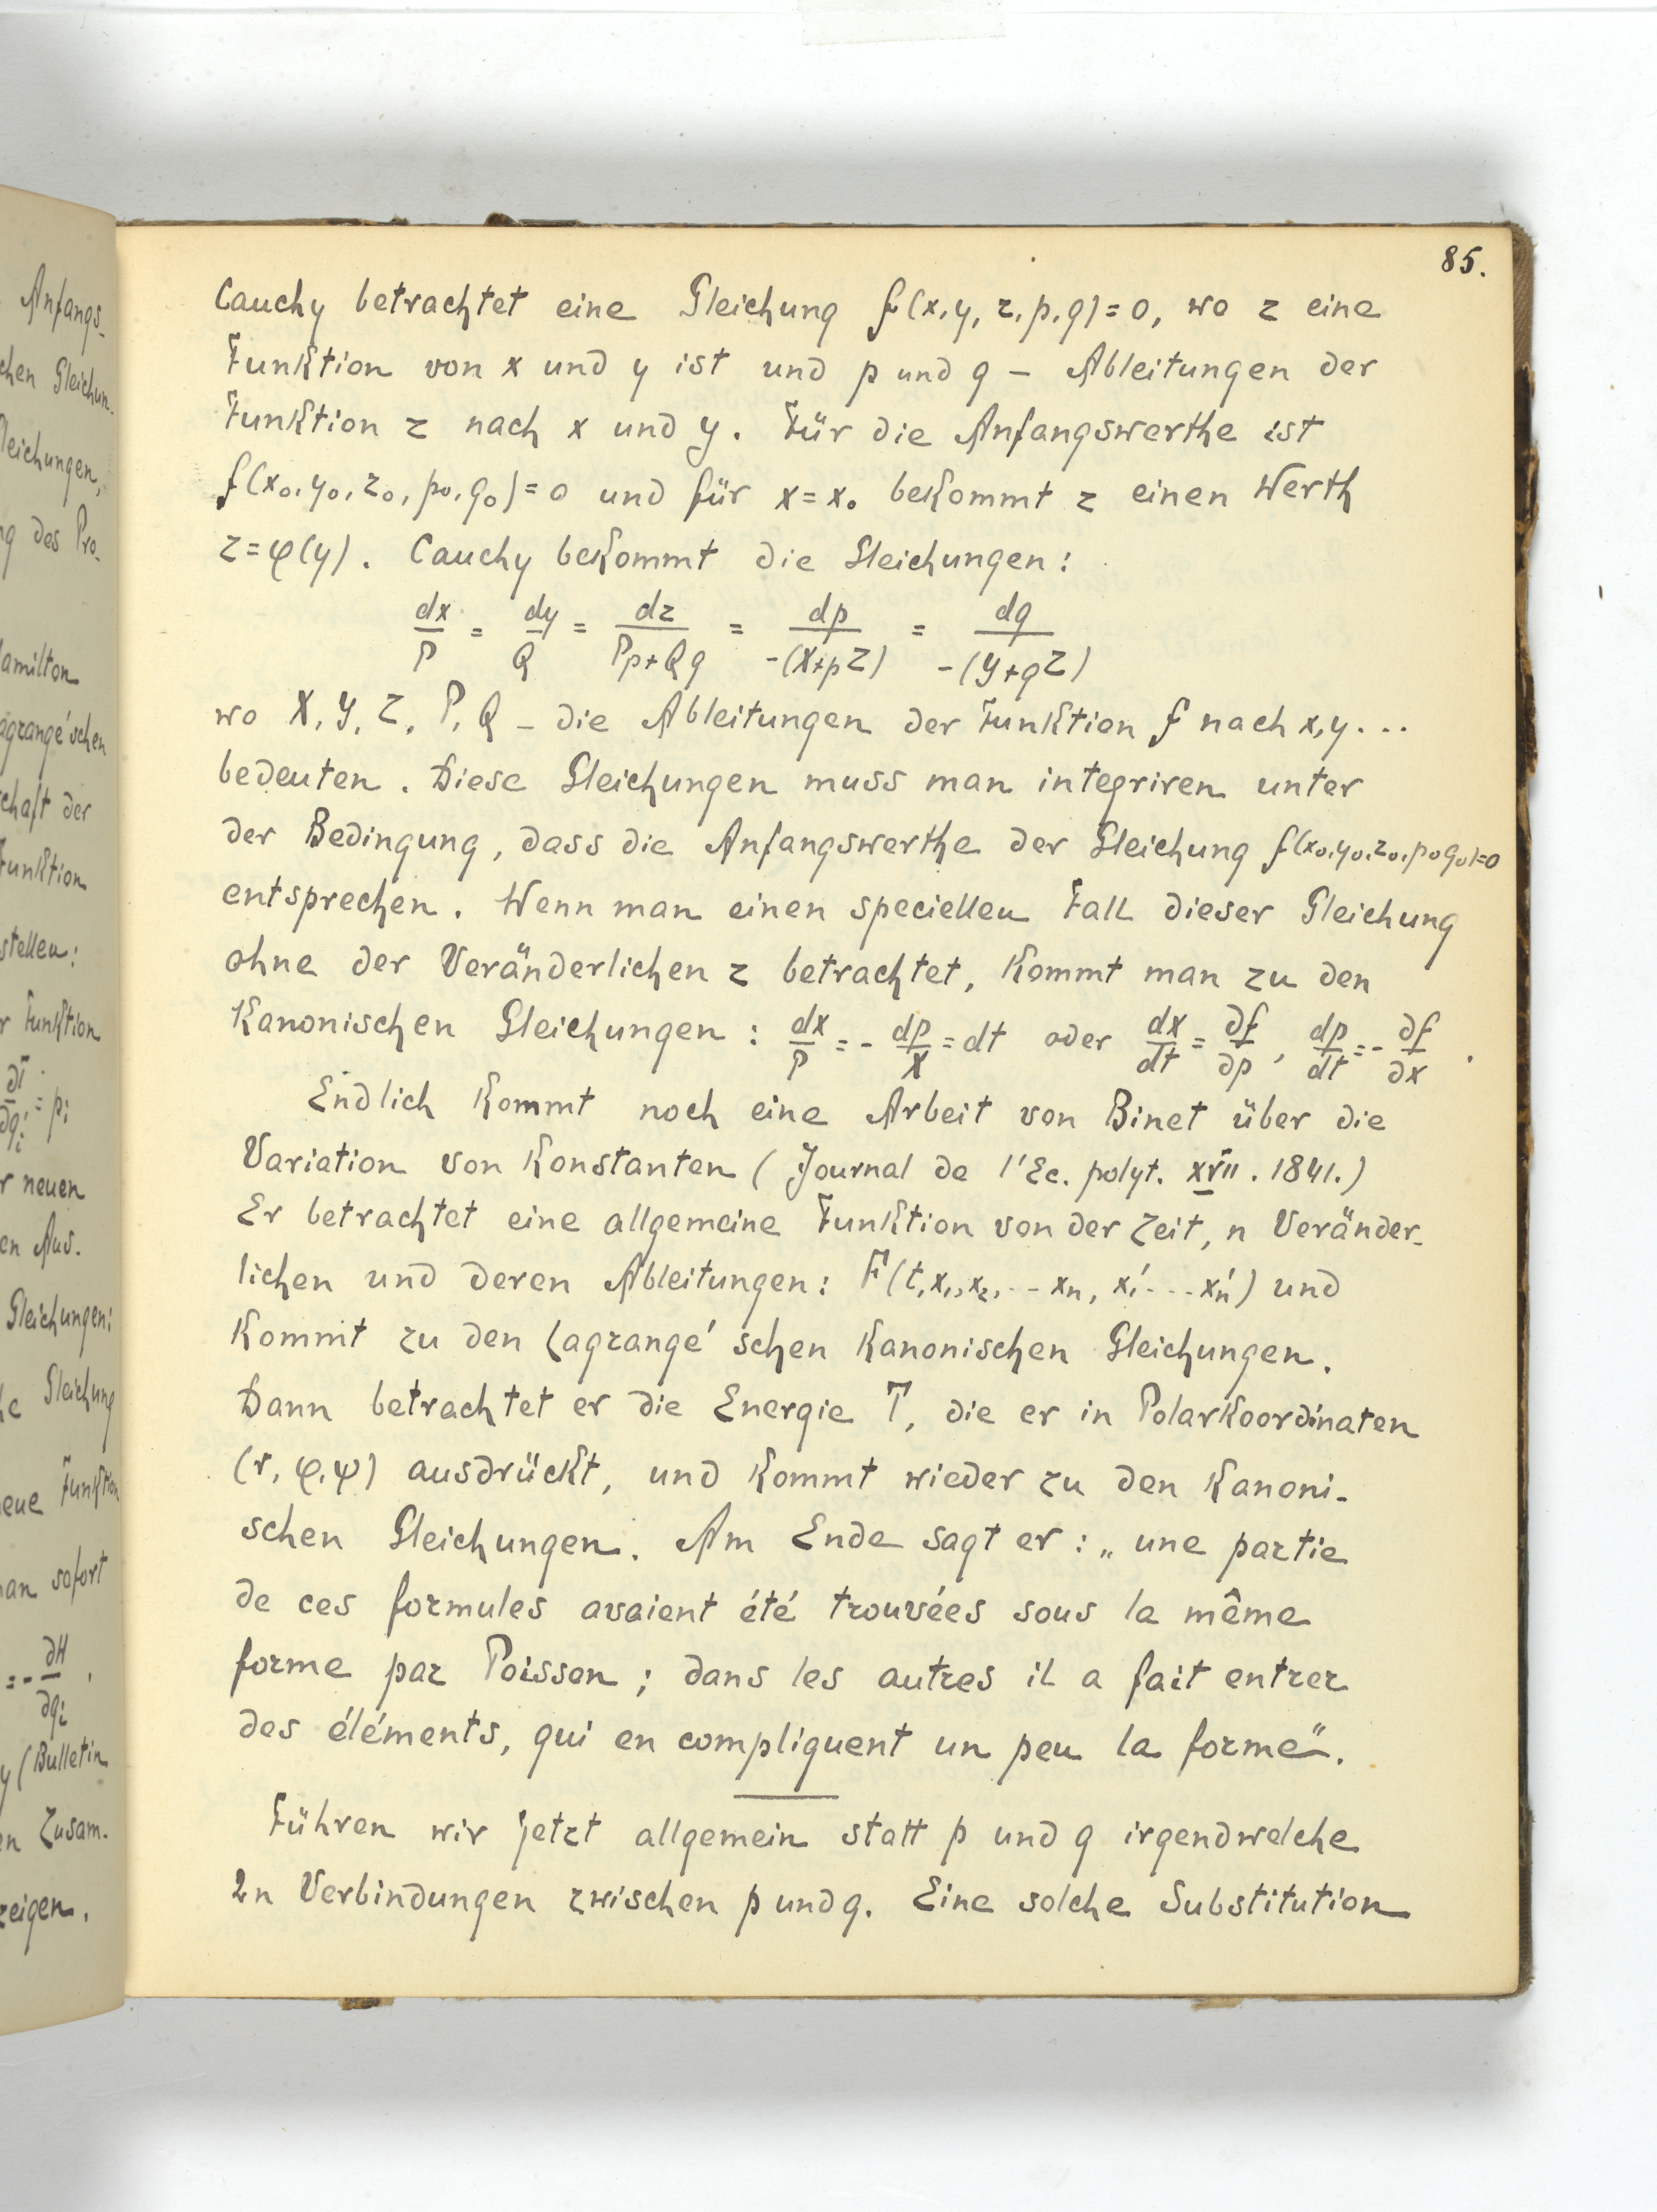 85.
Cauchy betrachtet eine Gleichung f(x, y, z, p, q) = 0, wo z eine
Funktion von x und y ist und p und q – Ableitungen der
Funktion z nach x und y. Für die Anfangswerthe ist
f(x₀, y₀, z₀, p₀, q₀) = 0 und für x = x₀ bekommt z einen Werth
z = φ(y). Cauchy bekommt die Gleichungen:
dx/P = dy/Q = dz/(Pp+Qq) = dp/-(X+pZ) = dq/-(Y+qZ)
wo X, Y, Z, P, Q – die Ableitungen der Funktion f nach x, y...
bedeuten. Diese Gleichungen muss man integriren unter
der Bedingung, dass die Anfangswerthe der Gleichung f(x₀, y₀, z₀, p₀ q₀) = 0
entsprechen. Wenn man einen speciellen Fall dieser Gleichung
ohne der Veränderlichen z betrachtet, kommt man zu den
kanonischen Gleichungen: dx/P = - dp/X = dt oder dx/dt = ∂f/∂p, dp/dt = - ∂f/∂x.
Endlich kommt noch eine Arbeit von Binet über die
Variation von Konstanten (Journal de l'Ec. polyt. XVII. 1841.)
Er betrachtet eine allgemeine Funktion von der Zeit, n Veränder-
lichen und deren Ableitungen: F(t, x₁, x₂, ... xₙ, x₁' ... xₙ') und
kommt zu den Lagrangé'schen kanonischen Gleichungen.
Dann betrachtet er die Energie T, die er in Polarkoordinaten
(r, φ, ψ) ausdrückt, und kommt wieder zu den kanoni-
schen Gleichungen. Am Ende sagt er: „une partie
de ces formules avaient été trouvées sous la même
forme par Poisson; dans les autres il a fait entrer
des éléments, qui en compliquent un peu la forme“.
Führen wir jetzt allgemein statt p und q irgendwelche
2n Verbindungen zwischen p und q. Eine solche Substitution